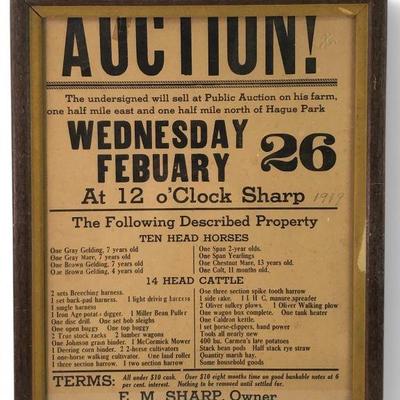 AUCTION!
The undersigned will sell at Public Auction on his farm,
one half mile east and one half mile north of Hague Park
WEDNESDAY
FEBUARY 26
At 12 o'Clock Sharp
The Following Described Property
TEN HEAD HORSES
One Gray Gelding, 7 years old
One Gray Mare, 7 years old
One Brown Gelding, 7 years old
One Brown Gelding, 4 years old
One Span 2-year olds.
One Span Yearlings
One Chestnut Mare, 13 years old.
One Colt, 11 months old.
14 HEAD CATTLE
2 sets Breeching harness.
1 set back-pad harness. 1 light driving harness
1 single harness
1 Iron Age potato digger. 1 Miller Bean Puller
One disc drill. One set bob sleighs
One open buggy One top buggy
2 Truck stock racks 2 lumber wagons
One Johnson grain binder. 1 McCormick Mower
1 Deering corn binder. 2 2-horse cultivators
1 one-horse walking cultivator. One land roller
1 three section harrow. 1 two section harrow
One three section spike tooth harrow
1 side rake. 1 I H C. manure spreader
2 Oliver sulkey plows. 1 Oliver Walking plow
One wagon box complete. One tank heater
One Caldron kettle.
1 set horse-clippers, hand power
Tools all nearly new
400 bu. Carmen's late potatoes
Stack bean pods Half stack rye straw
Quantity marsh hay.
Some household goods
TERMS: All under $10 cash. Over $10 eight months time on good bankable notes at 6
per cent. interest. Nothing to be removed until settled for.
E. M. SHARP, Owner